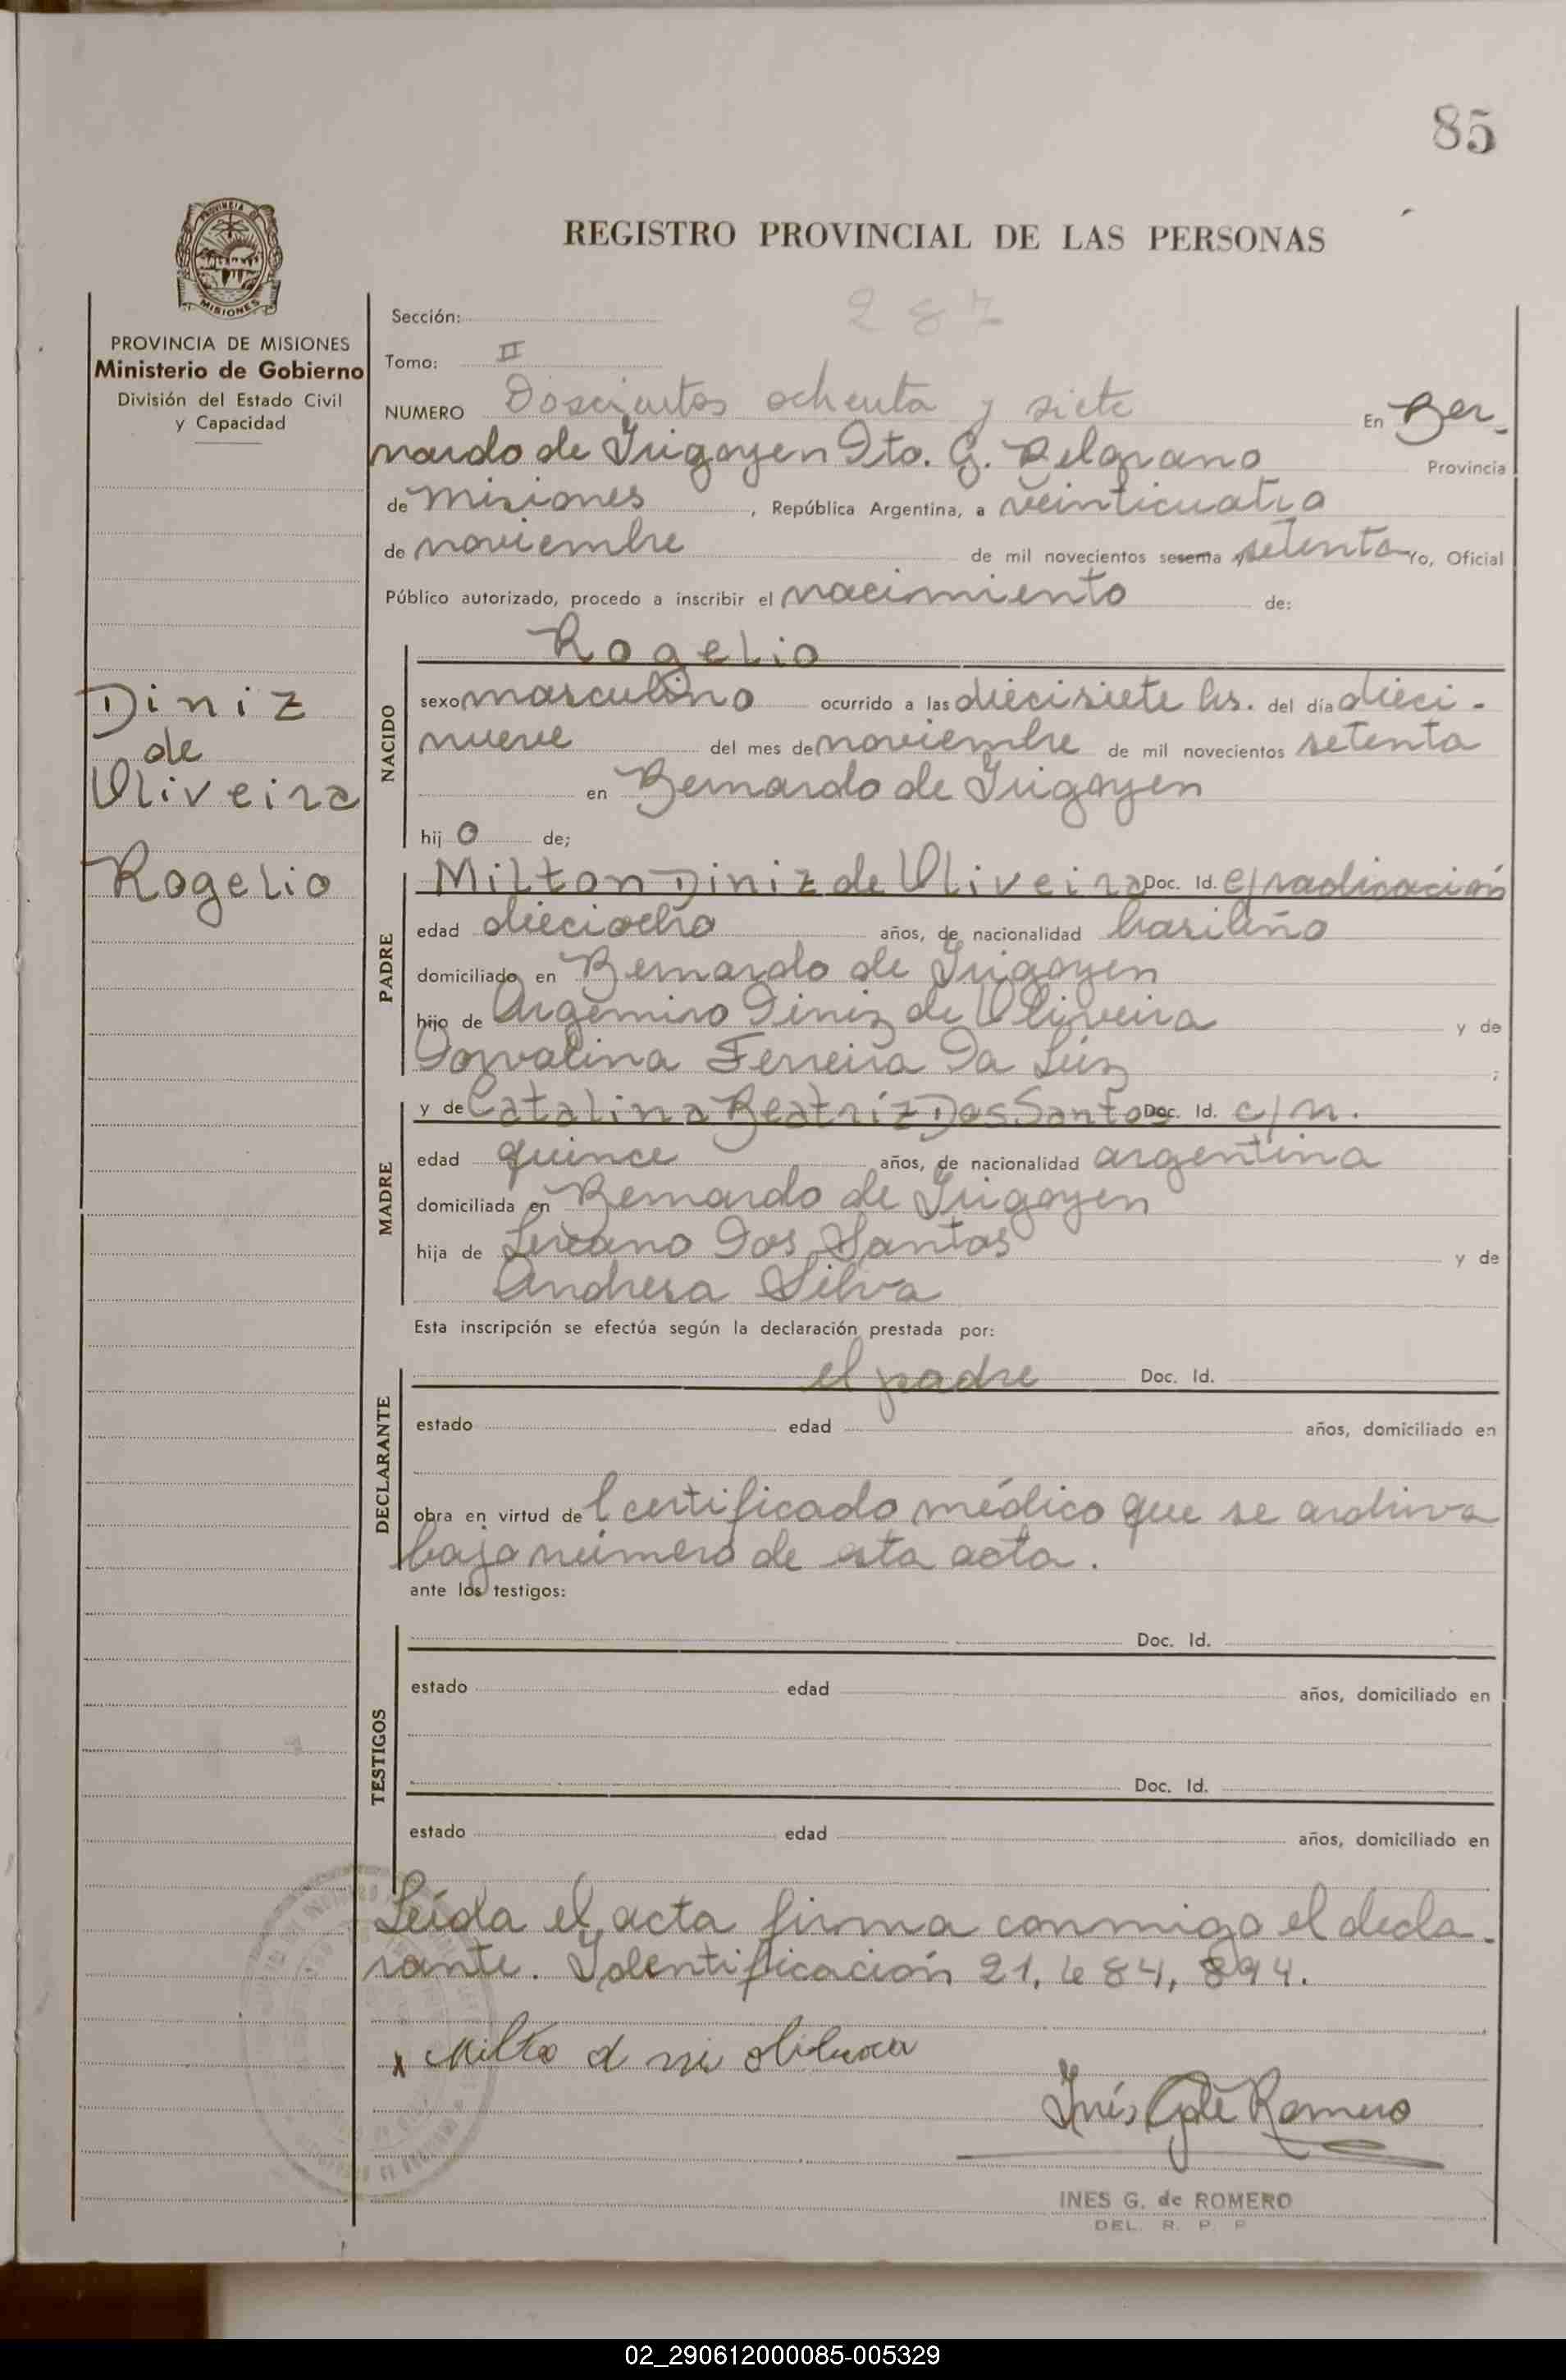 85
REGISTRO PROVINCIAL DE LAS PERSONAS
PROVINCIA DE MISIONES
Ministerio de Gobierno
División del Estado Civil
y Capacidad
Diniz
de
Oliveira
Rogelio
Sección:
287
Tomo: II
NUMERO Doscientos ochenta y siete En Ber-
nardo de Irigoyen Dto. G. Belgrano Provincia
de Misiones, República Argentina, a veinticuatro
de noviembre de mil novecientos sesenta y setenta Yo, Oficial
Público autorizado, procedo a inscribir el nacimiento de:
NACIDO
Rogelio
sexo masculino ocurrido a las diecisiete hs. del día dieci-
nueve del mes de noviembre de mil novecientos setenta
en Bernardo de Irigoyen
hij o de;
PADRE
Milton Diniz de Oliveira Doc. Id. e/radicación
edad dieciocho años, de nacionalidad brasileño
domiciliado en Bernardo de Irigoyen
hijo de Argemiro Diniz de Oliveira y de
Dorvalina Ferreira Da Luz ;
MADRE
y de Catalina Beatríz Dos Santos Doc. Id. c/n.
edad quince años, de nacionalidad argentina
domiciliada en Bernardo de Irigoyen
hija de Dos Santos y de
Andresa Silva
Esta inscripción se efectúa según la declaración prestada por:
DECLARANTE
el padre Doc. Id.
estado edad años, domiciliado en
obra en virtud de l certificado médico que se archiva
bajo número de esta acta.
ante los testigos:
TESTIGOS
Doc. Id.
estado edad años, domiciliado en
Doc. Id.
estado edad años, domiciliado en
Leída el acta firma conmigo el decla-
rante. Identificación 21.684,894.
Inés G de Romero
INES G. de ROMERO
DEL. R. P. P
02_290612000085-005329